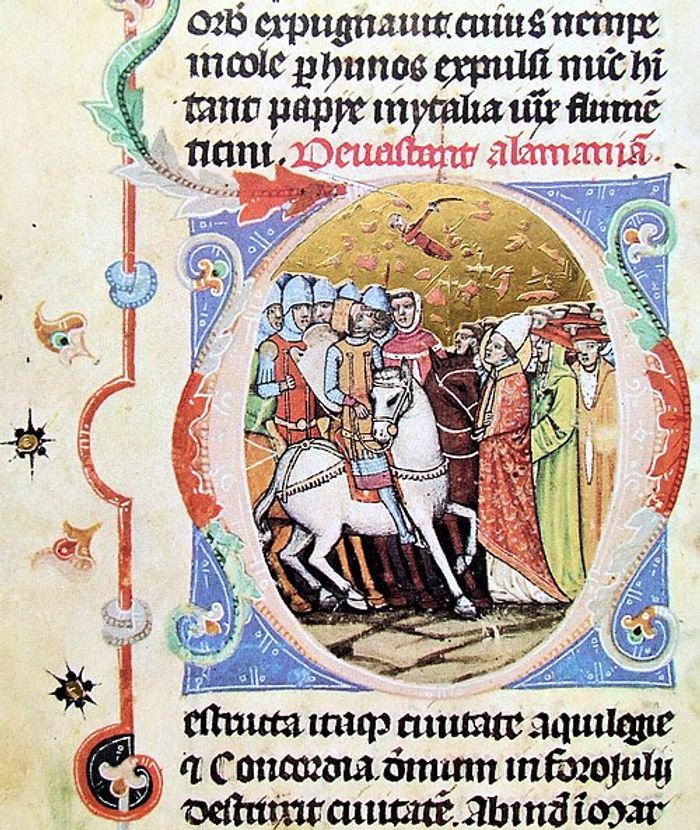 orb̄ expugnauit cuius nempe
incole ꝑ hunos expulsi nūc hī
tant papye inytalia iux̄ flumē
ticini . Deuastant alamaniā .
D
estructa itaqꝫ ciuitate aquilegie
⁊ Concordia . ōmium in foroJulij
destruxit ciuitatē . Abinđ ī mar